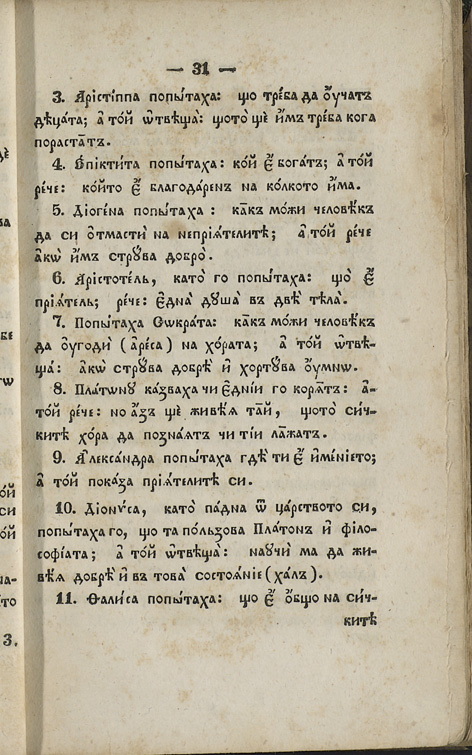 — 31 —
3. Арістіппа попытаха: що треба да оу҆чатъ
дѣцата; а҆ то́й ѿтвѣща: щото ще и҆мъ треба кога
порастатъ.
4. Е҆піктита попытаха: ко́й е҆ богатъ; а҆ то́й
рече: ко́йто е҆ благодаренъ на колкото и҆ма.
5. Діогена попытаха: какъ можи человѣкъ
да си ѿмасти на непріѧтелитѣ; а҆ то́й рече
а҆кѡ и҆мъ струва добро.
6. Арістотель, като го попытаха: що е҆
пріѧтель; рече: е҆дна душа въ двѣ тѣла.
7. Попытаха Сѡкрата: какъ можи человѣкъ
да оу҆годи (а҆реса) на хората; а҆ то́й ѿтвѣ-
ща: а҆кѡ струва добрѣ и҆ хортува оу҆мнѡ.
8. Платѡну казваха чи е҆дніи го корѧтъ: а҆-
то́й рече: но а҆зъ ще живѣѧ та́й, щото сич-
китѣ хора да познаѧтъ чи тіи лажатъ.
9. А҆леѯандра попытаха гдѣ ти е҆ и҆мѣніето;
а҆ то́й показа пріѧтелитѣ си.
10. Діонѵса, като падна ѿ царството си,
попытаха го, що та ползова Платонъ и҆ філо-
софіата; а҆ то́й ѿтвѣща: научи ма да жи-
вѣѧ добрѣ и҆ въ това состоѧніе (халъ).
11. Ѳалиса попытаха: що е҆ о҆бщо на сич-
китѣ